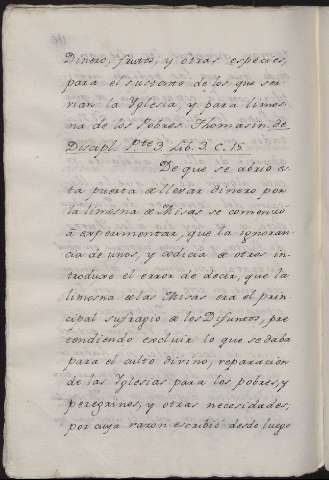 Dinero, frutos, y otras especies,
para el sustento de los que ser
vian la Yglesia, y para limos
na de los Pobres Thomasin. de
Discipl. Pte. 3. Lib. 3. C. 15
De que se abrio es
ta puerta de llevar dinero por
la limosna de Misas se comenzó
à experimentar, que la ignoran
cia de unos, y codicia de otros in
troduxe el error de decir, que la
limosna de las Misas era el prin
cipal sufragio de los Difuntos, pre
tendiendo excluir lo que se daba
para el culto divino, reparacion
de las Yglesias para los pobres, y
peregrinos, y otras necesidades;
por cuya razon escribió desde luego